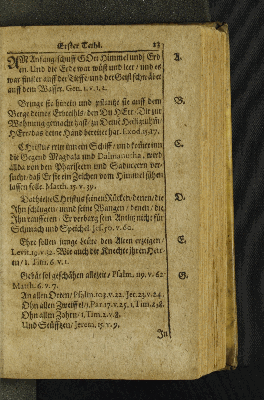 Erster Theil. 23
AM Anfang schuff GOtt Himmel und Erd- A.
en. Und die Erde war wüst und leer / und es
war finster auff der Tieffe und der Geist schwäbet
auff dem Wasser. Gen. 1. v. 1. 2.
Bringe sie hinein und pflantze sie auff dem B.
Berge deines Erbtheils / den Du HErr / Dir zur
Wohnung gemacht hast / zu Deinē Heiligthum
HErr / das deine Hand bereitet hat. Exod. 15. 17.
Christus in ein Schiff / und kompt in C.
die Gegend Magdala und Dalmanutha / ward
Alda von den Phariseern und Saduceern ver-
sucht / daß Er sie ein Zeichen vom Himmel sehen
lassen solle. Matth. 15. v. 39.
Da hielte Christus seinen Rücken / denen / die D.
Ihn schlugen / und seine Wangen / denen / die
Ihn raufften / Er verbarg sein Antlitz nicht für
Schmach und Speichel Jes. 50. v. 6.
Ehre sollen junge Leute den Alten erzeigen / E.
Levit. 19. v. 32. Wie auch die Knechte ihren Her-
ren / 1. Tim. 6. v. 1.
Gebät sol geschähen allezeit / Psalm. 119. v. 62 G.
Matth. 6. v. 7.
An allen Orten / Psalm. 103. v. 22. Jer. 23. v. 24.
Ohn allen Zweiffel /
Ohn allen Zohrn / 1. Tim. 2. v. 8.
Und Stüfftzen / Jerem. 15. v. 9.
In